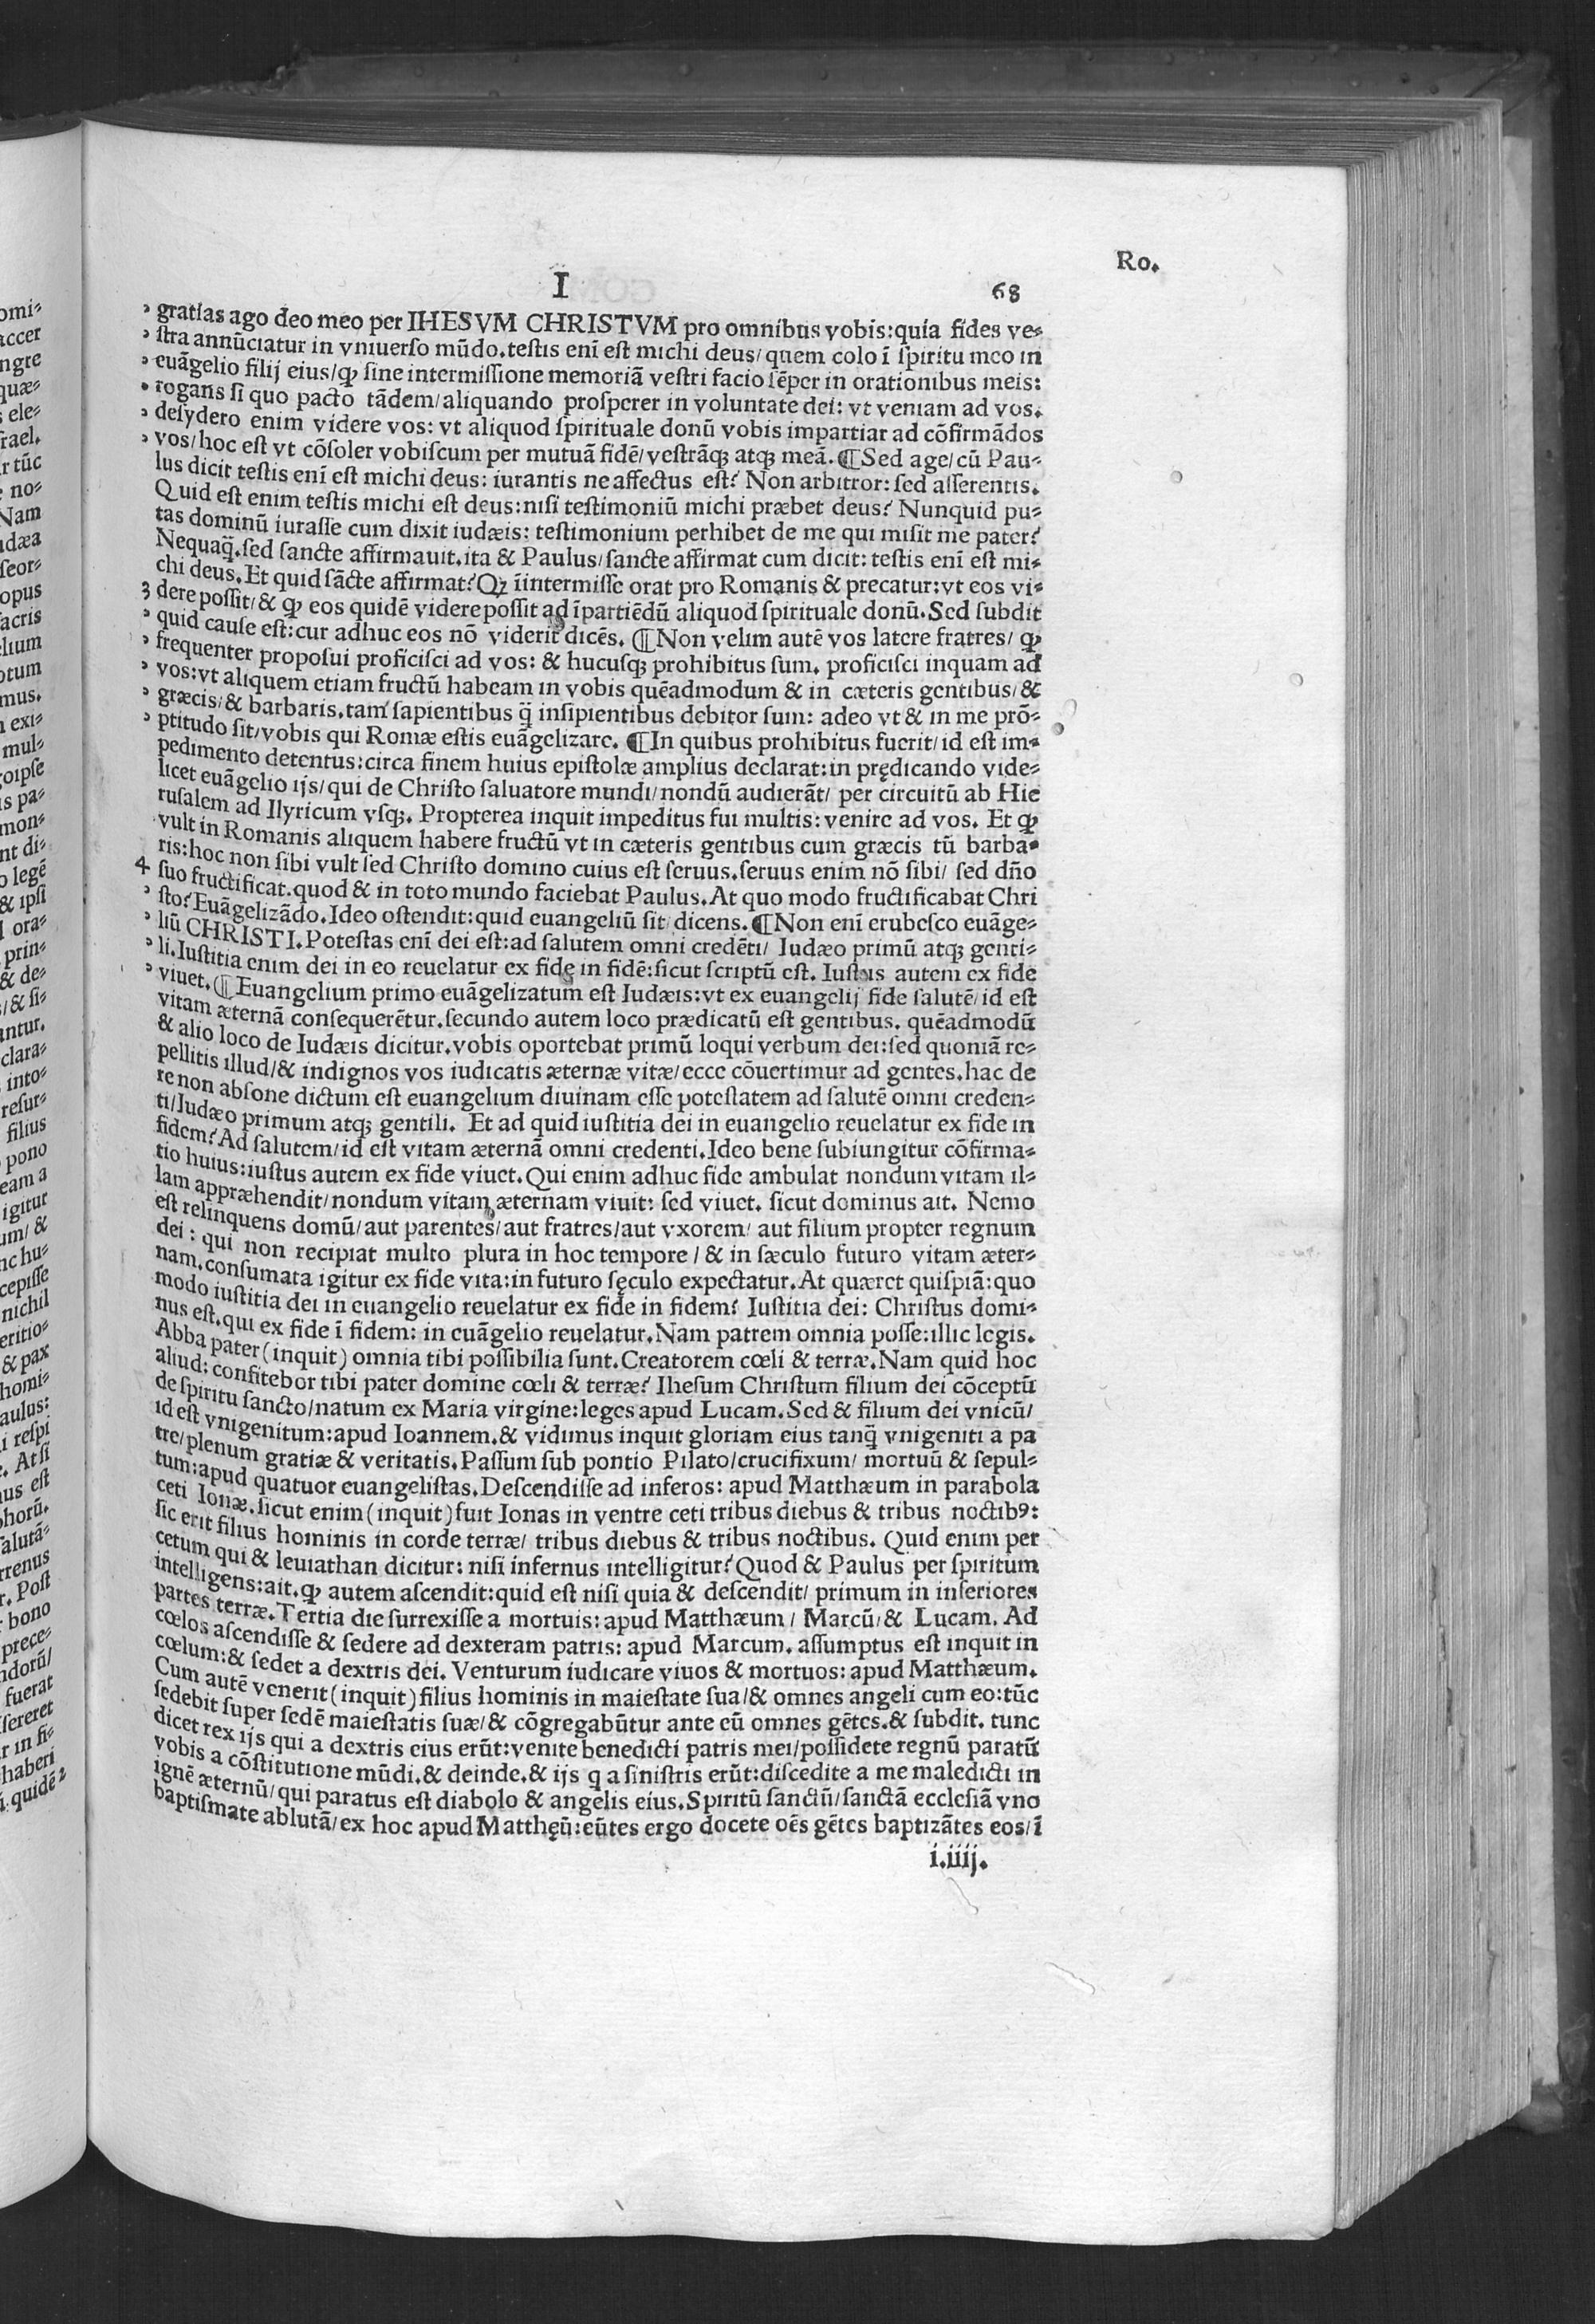 Ro.
I
68
gratias ago deo meo per IHESVM CHRISTVM pro omnibus vobis:quia fides ve⸗
ſtra annũciatur in vniuerſo mũdo.teſtis enĩ eſt michi deus/quem colo ĩ ſpiritu meo in
euãgelio filij eius/ꝙ ſine intermiſſione memoriã veſtri facio ſẽper in orationibus meis:
rogans ſi quo pacto tãdem/aliquando proſperer in voluntate dei: vt veniam ad vos.
deſydero enim videre vos: vt aliquod ſpirituale donũ vobis impartiar ad cõfirmãdos
vos/hoc eſt vt cõſoler vobiſcum per mutuã fidẽ/veſtrãqꝫ atqꝫ meã.¶Sed age/cũ Pau⸗
lus dicit teſtis enĩ eſt michi deus: iurantis ne affectus eſt? Non arbitror: ſed aſſerentis.
Quid eſt enim teſtis michi eſt deus:niſi teſtimoniũ michi præbet deus? Nunquid pu⸗
tas dominũ iuraſſe cum dixit iudæis: teſtimonium perhibet de me qui miſit me pater?
Nequaq̃.ſed ſancte affirmauit.ita & Paulus/ſancte affirmat cum dicit: teſtis enĩ eſt mi⸗
chi deus.Et quid ſãcte affirmat?Qꝫ ĩintermiſſe orat pro Romanis & precatur:vt eos vi⸗
3 dere poſſit/& ꝙ eos quidẽ videre poſſit ad ĩpartiẽdũ aliquod ſpirituale donũ.Sed ſubdit
quid cauſe eſt:cur adhuc eos nõ viderit dicẽs. ¶Non velim autẽ vos latere fratres/ ꝙ
frequenter propoſui proficiſci ad vos: & hucuſqꝫ prohibitus ſum. proficiſci inquam ad
vos:vt aliquem etiam fructũ habeam in vobis quẽadmodum & in cæteris gentibus/&
græcis/& barbaris.tam ſapientibus q̃ inſipientibus debitor ſum: adeo vt & in me prõ⸗
ptitudo ſit/vobis qui Romæ eſtis euãgelizare. ¶In quibus prohibitus fuerit/id eſt im⸗
pedimento detentus:circa finem huius epiſtolæ amplius declarat:in prędicando vide⸗
licet euãgelio ijs/qui de Chriſto ſaluatore mundi/nondũ audierãt/ per circuitũ ab Hie
ruſalem ad Ilyricum vſqꝫ. Propterea inquit impeditus fui multis:venire ad vos. Et ꝙ
vult in Romanis aliquem habere fructũ vt in cæteris gentibus cum græcis tũ barba⸗
ris:hoc non ſibi vult ſed Chriſto domino cuius eſt ſeruus.ſeruus enim nõ ſibi/ ſed dño
4 ſuo fructificat.quod & in toto mundo faciebat Paulus.At quo modo fructificabat Chri
ſto?Euãgelizãdo.Ideo oſtendit:quid euangeliũ ſit/dicens.¶Non enĩ erubeſco euãge⸗
liũ CHRISTI.Poteſtas enĩ dei eſt:ad ſalutem omni credẽti/ Iudæo primũ atqꝫ genti⸗
li.Iuſtitia enim dei in eo reuelatur ex fide in fidẽ:ſicut ſcriptũ eſt. Iuſtus autem ex fide
viuet.¶Euangelium primo euãgelizatum eſt Iudæis:vt ex euangelij fide ſalutẽ/id eſt
vitam æternã conſequerẽtur.ſecundo autem loco prædicatũ eſt gentibus. quẽadmodũ
& alio loco de Iudæis dicitur.vobis oportebat primũ loqui verbum dei:ſed quoniã re⸗
pellitis illud/& indignos vos iudicatis æternæ vitæ/ecce cõuertimur ad gentes.hac de
re non abſone dictum eſt euangelium diuinam eſſe poteſtatem ad ſalutẽ omni creden⸗
ti/Iudæo primum atqꝫ gentili. Et ad quid iuſtitia dei in euangelio reuelatur ex fide in
fidem?Ad ſalutem/id eſt vitam æternã omni credenti.Ideo bene ſubiungitur cõfirma⸗
tio huius:iuſtus autem ex fide viuet.Qui enim adhuc fide ambulat nondum vitam il⸗
lam appræhendit/nondum vitam æternam viuit: ſed viuet. ſicut dominus ait. Nemo
eſt relinquens domũ/aut parentes/aut fratres/aut vxorem/ aut filium propter regnum
dei: qui non recipiat multo plura in hoc tempore/& in ſæculo futuro vitam æter⸗
nam.conſumata igitur ex fide vita:in futuro ſęculo expectatur.At quæret quiſpiã:quo
modo iuſtitia dei in euangelio reuelatur ex fide in fidem? Iuſtitia dei: Chriſtus domi⸗
nus eſt.qui ex fide ĩ fidem: in euãgelio reuelatur.Nam patrem omnia poſſe:illic legis.
Abba pater(inquit)omnia tibi poſſibilia ſunt.Creatorem cœli & terræ.Nam quid hoc
aliud: confitebor tibi pater domine cœli & terræ? Iheſum Chriſtum filium dei cõceptũ
de ſpiritu ſancto/natum ex Maria virgine:leges apud Lucam.Sed & filium dei vnicũ/
id eſt vnigenitum:apud Ioannem.& vidimus inquit gloriam eius tanq̃ vnigeniti a pa
tre/plenum gratiæ & veritatis.Paſſum ſub pontio Pilato/crucifixum/ mortuũ & ſepul⸗
tum:apud quatuor euangeliſtas.Deſcendiſſe ad inferos: apud Matthæum in parabola
ceti Ionæ.ſicut enim(inquit)fuit Ionas in ventre ceti tribus diebus & tribus noctibꝰ:
ſic erit filius hominis in corde terræ/ tribus diebus & tribus noctibus. Quid enim per
cetum qui & leuiathan dicitur: niſi infernus intelligitur?Quod & Paulus per ſpiritum
intelligens:ait.ꝙ autem aſcendit:quid eſt niſi quia & deſcendit/ primum in inferiores
partes terræ.Tertia die ſurrexiſſe a mortuis: apud Matthæum/ Marcũ/& Lucam. Ad
cœlos aſcendiſſe & ſedere ad dexteram patris: apud Marcum. aſſumptus eſt inquit in
cœlum:& ſedet a dextris dei. Venturum iudicare viuos & mortuos: apud Matthæum.
Cum autẽ venerit(inquit)filius hominis in maieſtate ſua/& omnes angeli cum eo:tũc
ſedebit ſuper ſedẽ maieſtatis ſuæ/& cõgregabũtur ante eũ omnes gẽtes.& ſubdit. tunc
dicet rex ijs qui a dextris eius erũt:venite benedicti patris mei/poſſidete regnũ paratũ
vobis a cõſtitutione mũdi.& deinde.& ijs q a ſiniſtris erũt:diſcedite a me maledicti in
ignẽ æternũ/qui paratus eſt diabolo & angelis eius.Spiritũ ſanctũ/ſanctã eccleſiã vno
baptiſmate ablutã/ex hoc apud Matthęũ:eũtes ergo docete oẽs gẽtes baptizãtes eos/ĩ
i.iiij.